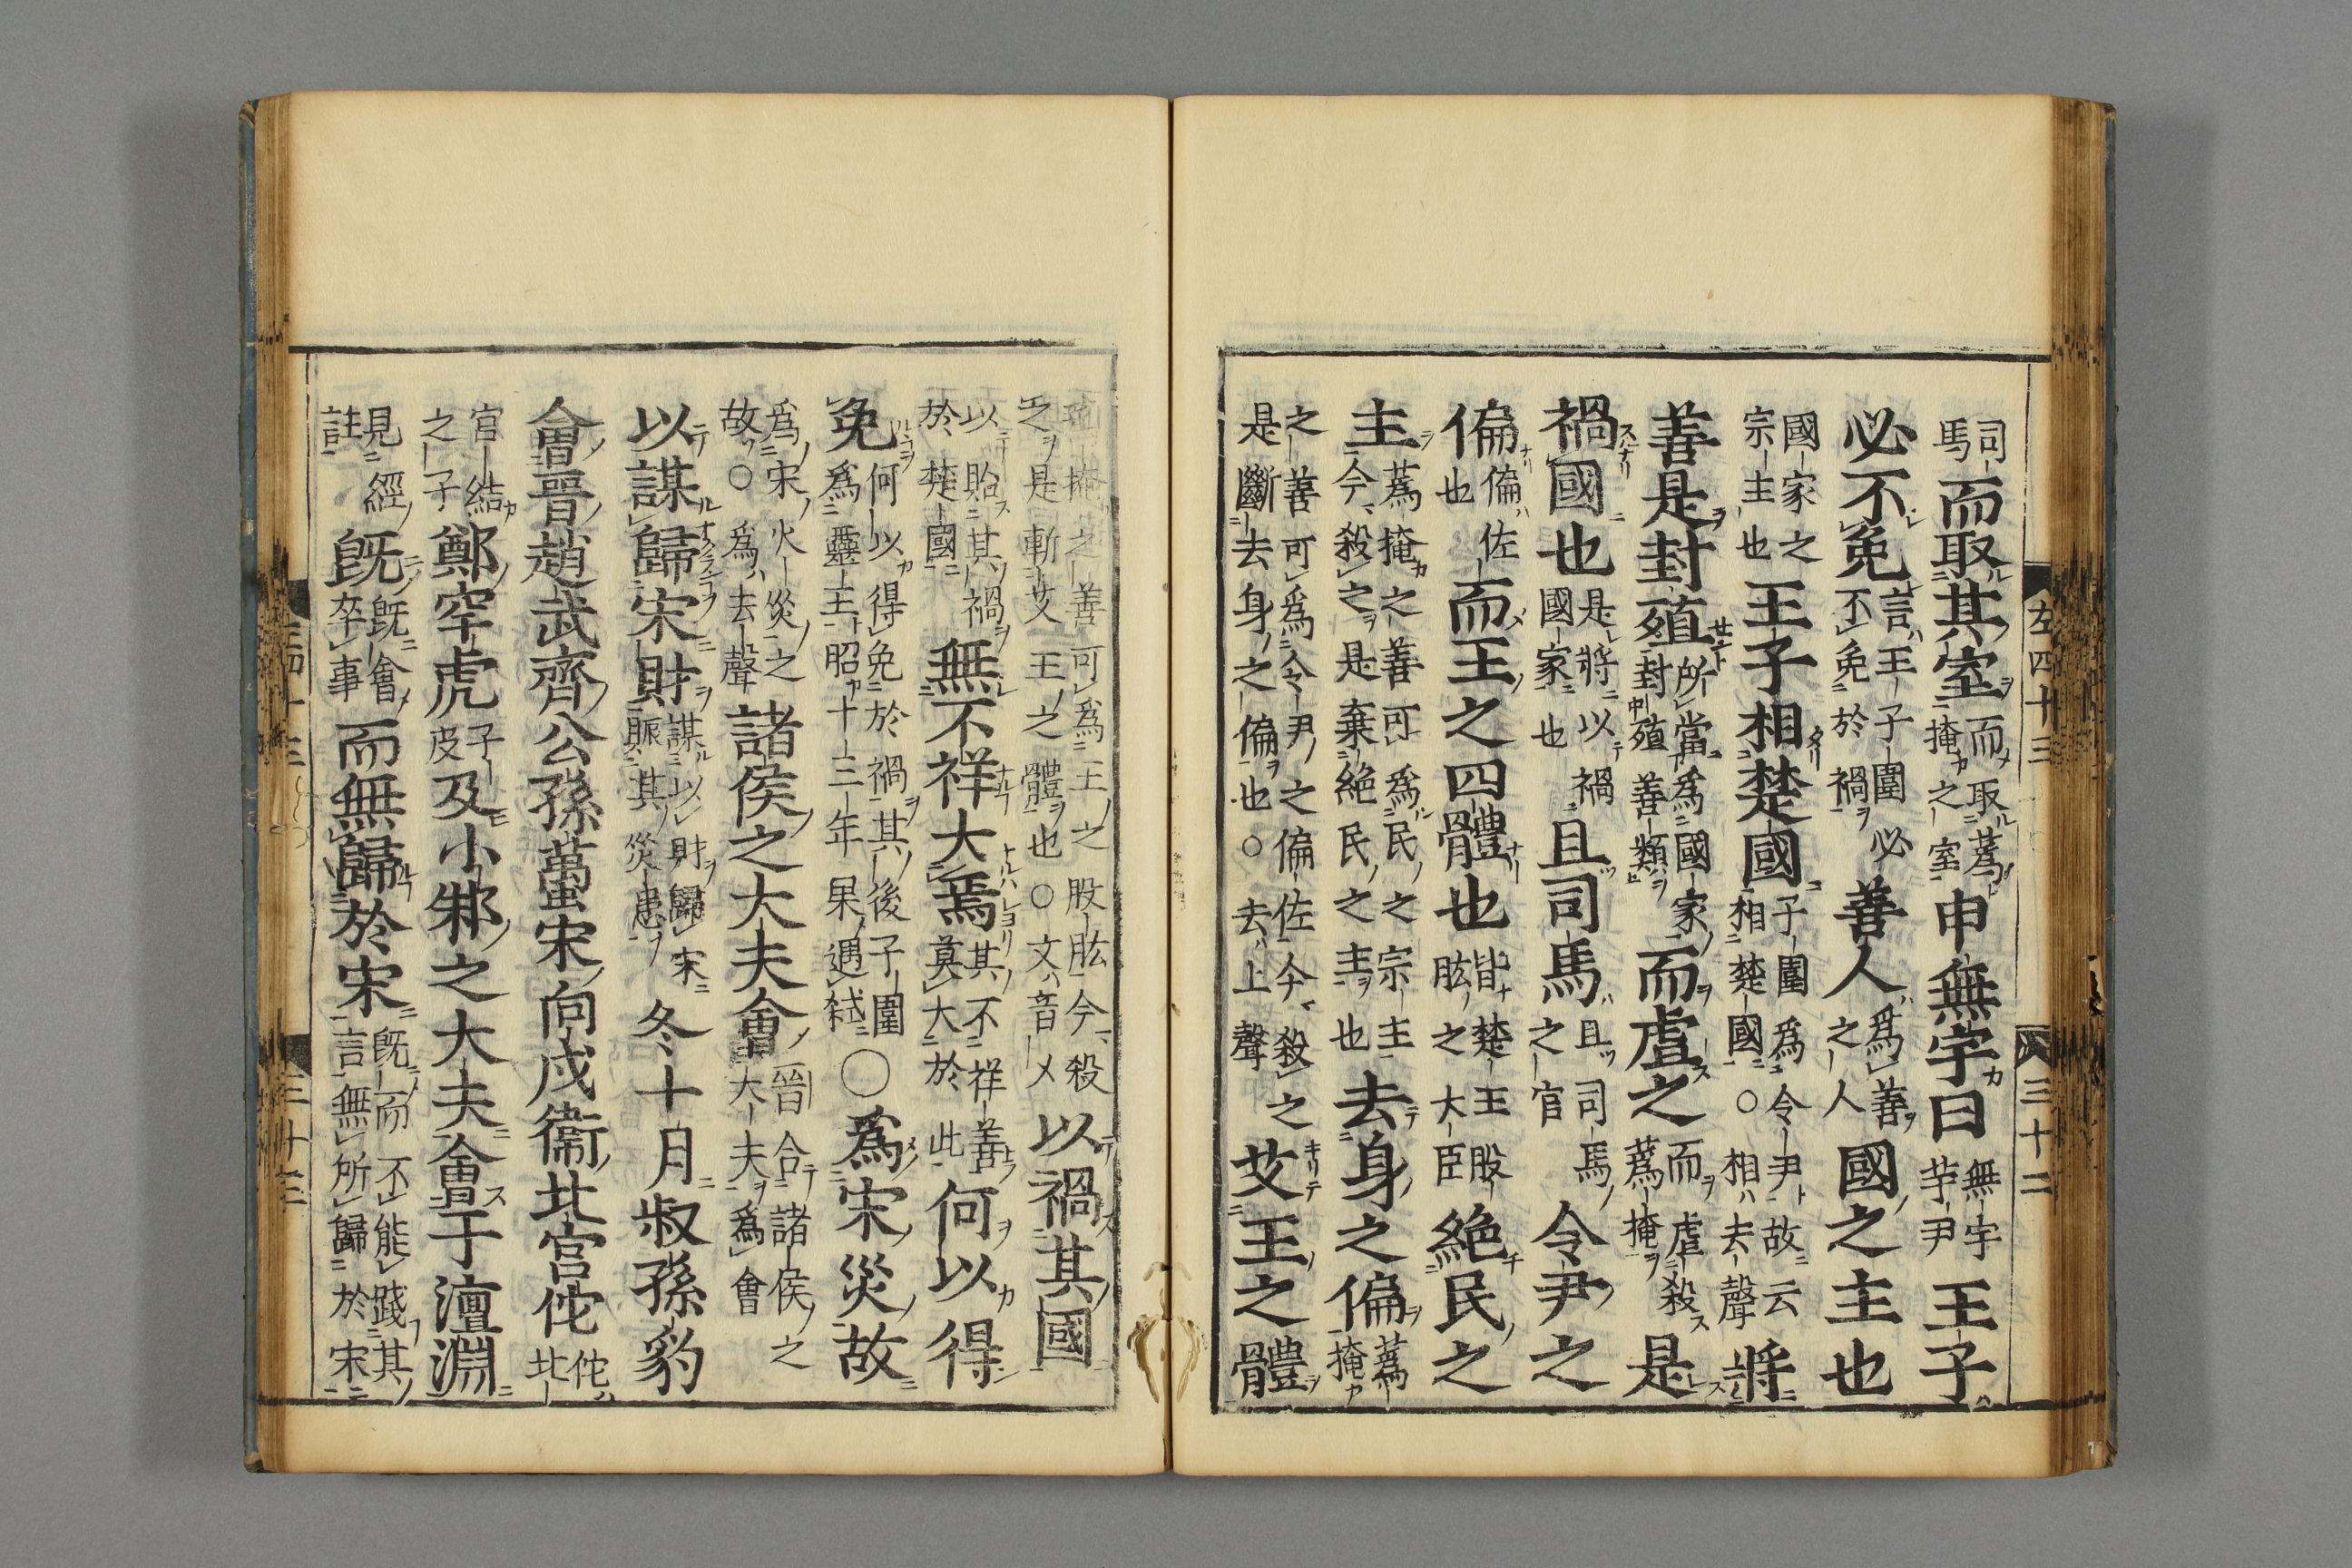 左四十三 三十二
司馬而取其室而取蔿掩之室申無宇曰無宇芋尹王子
必不免言王子圍必不免於禍善人為善之人國之主也
國家之宗主也王子相楚國子圍為令尹故云相楚國○相去聲將
善是封殖所當為國家封殖善類而虐之而虐殺蔿掩是
禍國也是將以禍國家也且司馬且司馬之官令尹之
偏偏佐也而王之四體也皆楚王股肱之大臣絶民之
主蔿掩之善可為民之宗主今殺之是棄絶民之主也去身之偏蔿掩
之善可為令尹之偏佐今殺之是斷去身之偏也○去上聲艾王之體
掩之善可為王之股肱今殺之是斬艾王之體也○文音乂以禍其國
以貽其禍於楚國無不祥大焉其不祥善莫大於此何以得
免何以得免於禍其後子圍為靈王昭十三年果遇弑○為宋災故
為宋火災之故○為去聲諸侯之大夫會晉合諸侯之大夫為會
以謀歸宋財謀以財歸宋賑其災患冬十月叔孫豹
會晉趙武齊公孫蠆宋向戌衛北宮佗佗北
宮結之子鄭罕虎子皮及小邾之大夫會于澶淵
見經註既既會卒事而無歸於宋既而不能踐其言無所歸於宋
三十三